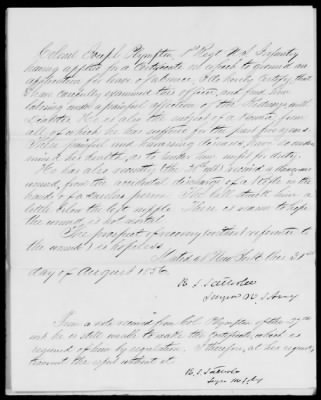 Colonel Joseph Plympton, 1st Regt U.S. Infantry
having applied for a certificate on which to ground an
application for leave of absence, I do hereby certify, that
I have carefully examined this officer, and find him
laboring under a painful affection of the Kidneys, with
He is also the subject of a Hernia, from
all of which he has suffered for the past five years.
These painful and harassing diseases, have so under
mined his health, as to render him unfit for duty.
He has also recently received a dangerous
wound, from the accidental discharge of a Rifle in the
hands of a careless person. The ball struck him a
little below the left nipple. There is reason to hope
the wound is not mortal.
The prospect of recovery without reference to
the wound is hopeless.
Dated at New York this 31st
day of August 1856.
B. S.
Surgeon U.S. Army
From a note received from Col. Plympton of the 29th
inst. he is still unable to make the certificate, which is
required of him by regulation. I therefore, at his request,
transmit the report without it.
B. S.
Surgn U.S. Army